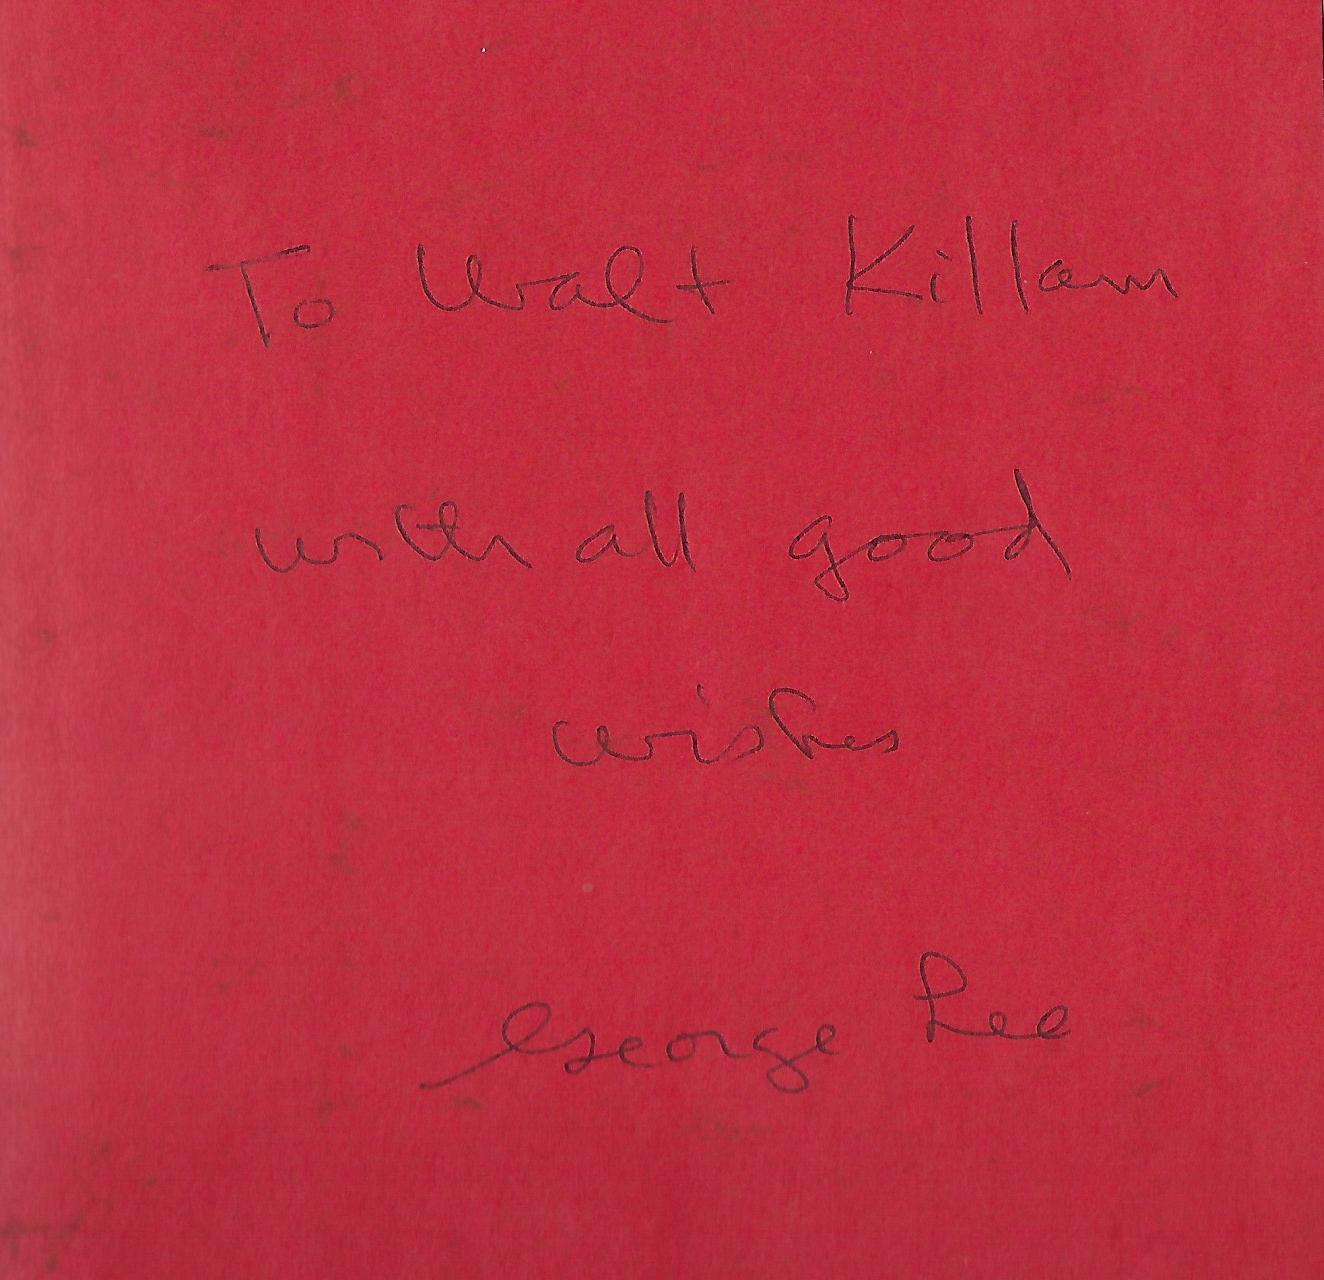 To Walt Killam
with all good
wishes
George Lee